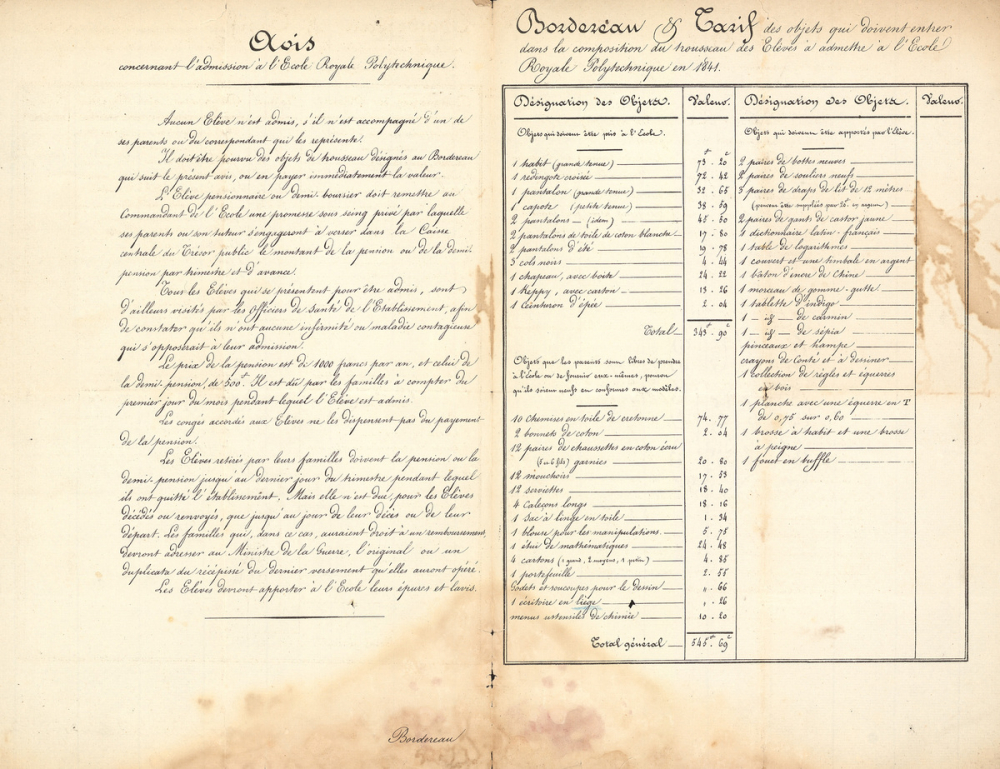 Avis
concernant l'admission à l'Ecole Royale Polytechnique.
Aucun Elève n'est admis, s'il n'est accompagné d'un de
ses parents ou du correspondant qui les représente.
Il doit être pourvu des objets de trousseau désignés au Bordereau
qui suit le présent avis, ou en payer immédiatement la valeur.
L'Elève pensionnaire ou demi-boursier doit remettre au
Commandant de l'Ecole une promesse sous seing privé par laquelle
ses parents ou son tuteur s'engageront à verser dans la Caisse
centrale du Trésor public le montant de la pension ou de la demi-
pension par trimestre et d'avance.
Tous les Elèves qui se présentent pour être admis, sont
d'ailleurs visités par les Officiers de Santé de l'Etablissement, afin
de constater qu'ils n'ont aucune infirmité ou maladie contagieuse
qui s'opposerait à leur admission.
Le prix de la pension est de 1000 francs par an, et celui de
la demi-pension, de 500f. Il est dû par les familles à compter du
premier jour du mois pendant lequel l'Elève est admis.
Les congés accordés aux Elèves ne les dispensent pas du payement
de la pension.
Les Elèves retirés par leurs familles doivent la pension ou la
demi-pension jusqu'au dernier jour du trimestre pendant lequel
ils ont quitté l'établissement. Mais elle n'est due, pour les Elèves
décédés ou renvoyés, que jusqu'au jour de leur décès ou de leur
départ. Les familles qui, dans ce cas, auraient droit à un remboursement,
devront adresser au Ministre de la Guerre, l'original ou un
duplicata du récépissé du dernier versement qu'elles auront opéré.
Les Elèves devront apporter à l'Ecole leurs épures et lavis.
Bordereau
Bordereau & Tarif des objets qui doivent entrer
dans la composition du trousseau des Elèves à admettre à l'Ecole
Royale Polytechnique en 1841.
Désignation des Objets. Valeur.
Objets qui doivent être pris à l'Ecole.
1 habit (grande tenue) 73f. 20c
1 redingote croisée 72. 42
1 pantalon (grande tenue) 32. 65
1 capote (petite tenue) 38. 69
2 pantalons — (idem) 45. 50
2 pantalons de toile de coton blanche 17. 80
2 pantalons d'été 19. 78
3 cols noirs 4. 44
1 chapeau, avec boîte 24. 22
1 Keppy, avec carton 13. 26
1 ceinturon d'épée 2. 04
Total 343f. 90c
Objets que les parents sont libres de prendre
à l'école ou de fournir eux-mêmes, pourvu
qu'ils soient neufs et conformes aux modèles.
10 chemises en toile de cretonne 74. 77
2 bonnets de coton 2. 04
12 paires de chaussettes en coton écru
(5 ou 6 fils) garnies 20. 80
12 mouchoirs 17. 53
12 serviettes 18. 40
4 Caleçons longs 18. 16
1 Sac à linge en toile 1. 34
1 blouse pour les manipulations 5. 75
1 étui de mathématiques 24. 48
4 cartons (1 grand, 2 moyens, 1 petit) 4. 85
1 portefeuille 2. 55
Godets et soucoupes pour le dessin „. 66
1 écritoire en liège „. 26
menus ustensiles de chimie 10. 20
Total général 545f. 69c
Désignation des Objets. Valeur.
Objets qui doivent être apportés par l'Elève.
2 paires de bottes neuves
2 paires de souliers neufs
3 paires de draps de lit de 12 mètres
2 paires de gants de castor jaune
1 dictionnaire latin-français
1 table de logarithmes
1 couvert et une timbale en argent
1 bâton d'encre de Chine
1 morceau de gomme-gutte
1 tablette d'indigo
1 — id — de carmin
1 — id — de sépia
pinceaux et hampe
crayons de Conté et à dessiner
1 collection de règles et équerres
en bois
1 planche avec une équerre en T
de 0,75 sur 0,60
1 brosse à habit et une brosse
à peigne
1 fouet en buffle